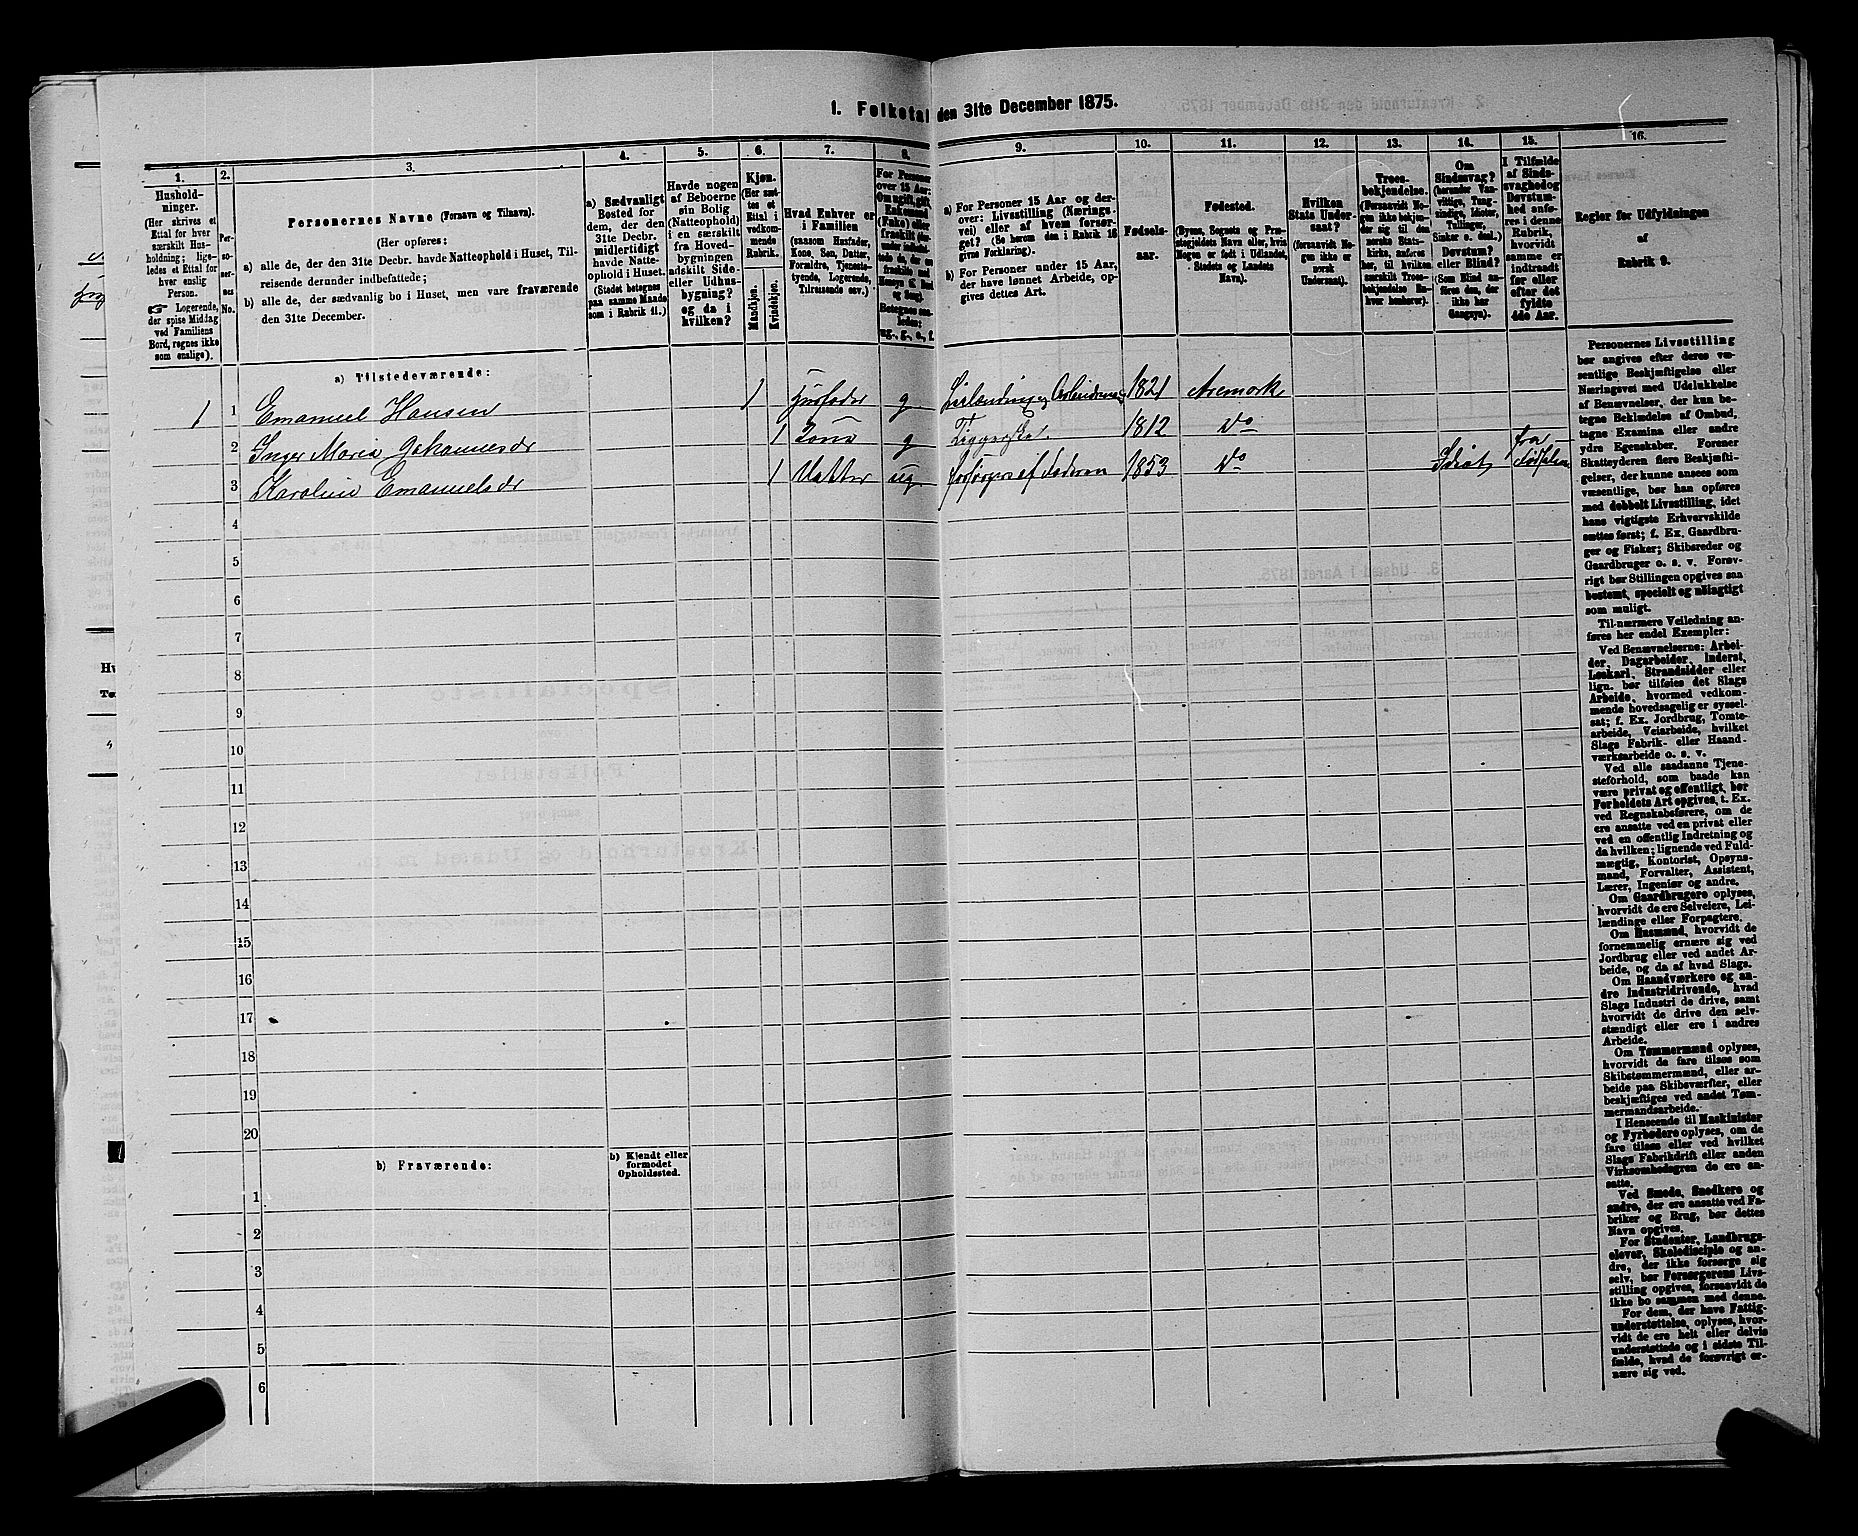 1. Folketal den 31te December 1875.
1.
2.
3.
4.
5.
6.
7.
8.
9.
10.
11.
12.
13.
14.
15.
16.
Hushold-
ninger.
(Her skrives et
Ettal for hver
særskilt Hus-
holdning; lige-
ledes et Ettal for
hver enslig
Person.
☞ Logerende,
der spise Middag
ved Familiens
Bord, regnes ikke
som enslige).
Per-
so-
ner-
nes
No.
Personernes Navne (Fornavn og Tilnavn).
(Her opføres:
a) alle de, der den 31te Decbr. havde Natteophold i Huset, Til-
reisende derunder indbefattede;
b) alle de, der sædvanlig bo i Huset, men vare fraværende
den 31te December.
a) Sædvanligt
Bosted for
dem, der den
31te Decbr.
midlertidigt
havde Natte-
ophold i Huset.
(Stedet betegnes
paa samme Maade
som i Rubrik 11.)
Havde nogen
af Beboerne
sin Bolig
(Natteophold)
i en særskilt
fra Hoved-
bygningen
adskilt Side-
eller Udhus-
bygning?
og da i
hvilken?
Kjøn.
(Her sæt-
tes et
Ettal i
vedkom-
mende
Rubrik.
Mandkjøn.
Kvindekjøn.
Hvad Enhver er
i Familien
(saasom Husfader,
Kone, Søn, Datter,
Forældre, Tjeneste-
tyende, Logerende,
Tilreisende osv.)
For Personer
over 15 Aar:
Om ugift, gift,
Enkemand
(Enke) eller
fraskilt
ug., g., e., f.
a) For Personer 15 Aar og der-
over: Livsstilling (Nærings-
vei) eller af hvem forsør-
get? (Se herom den i Rubrik 16
givne Forklaring).
b) For Personer under 15 Aar,
der have lønnet Arbeide, op-
gives dettes Art.
Fødsels-
aar.
Fødested.
(Byens, Sognets og Præ-
stegjeldets Navn eller, hvis
Nogen er født i Udlandet,
Stedets og Landets
Navn).
Hvilken
Stats Under-
saat?
(forsaavidt No-
gen ikke er
norsk
Undersaat).
Troes-
bekjendelse.
(Forsaavidt No-
gen ikke bekjen-
der sig til den
norske Stats-
kirke, anføres
her, til hvilken
særskilt Troes-
bekjendelse En-
hver henhører).
Om
Sindssvag?
(herunder Van-
vittige, Tung-
sindige, Idioter,
Tullinger,
Sinker o. desl.)
Døvstum?
eller Blind?
(Som Blind an-
føres den, der
ikke har
Gangsyn).
I Tilfælde
af Sinds-
svaghed og
Døvstum-
hed anfø-
res i denne
Rubrik,
hvorvidt
samme er
indtraadt
før eller
efter det
fyldte
4de Aar.
Regler for Udfyldningen
af
Rubrik 9.
a) Tilstedeværende:
1 1 Emanuel Hansen 1 Husfader g 1821 Aremark
2 Inger Maria Johannesdr 1 Kone g 1812 do
3 Karoline Emanuelsdr 1 Datter ug forsørges af Faderen 1853 do Idiot fra Fødselen
4
5
6
7
8
9
10
11
12
13
14
15
16
17
18
19
20
b) Fraværende:
b) Kjendt eller
formodet
Opholdssted.
1
2
3
4
5
6
Personernes Livsstilling
bør angives efter deres væ-
sentlige Beskjæftigelse eller
Næringsvei med Udelukkelse
af Benævnelser, der kun be-
tegne Beklædelse af Ombud,
tagne Examina eller andre
ydre Egenskaber. Forener
Skatteyderen flere Beskjæfti-
gelser, der kunne ansees som
væsentlige, bør han opføres
med dobbelt Livsstilling, idet
hans vigtigste Erhvervskilde
sættes først; f. Ex. Gaardbru-
ger og Fisker; Skibsreder og
Gaardbruger o. s. v. Forøv-
rigt bør Stillingen opgives saa
bestemt, specielt og nøiagtigt
som muligt.
Til nærmere Veiledning an-
føres her endel Exempler:
Ved Benævnelserne: Arbei-
der, Dagarbeider, Inderst,
Løskarl, Strandsidder eller
lign. bør tilføies det Slags
Arbeide, hvormed vedkom-
mende hovedsagelig er syssel-
sat; f. Ex. Jordbrug, Tomte-
arbeide, Veiarbeide, hvilket
Slags Fabrik- eller Haand-
værksarbeide o. s. v.
Ved alle saadanne Tjene-
steforhold, som baade kan
være privat og offentligt, bør
Forholdets Art opgives, t. Ex.
ved Regnskabsførere, om de
ere ansatte ved en privat eller
ved en offentlig Indretning og
da hvilken; lignende ved Fuld-
mægtig, Kontorist, Opsyns-
mand, Forvalter, Assistent,
Lærer, Ingeniør og andre.
Om Gaardbrugere oplyses,
hvorvidt de ere Selveiere, Lei-
lændinge eller Forpagtere.
Om Husmænd, hvorvidt de
fornemmelig ernære sig ved
Jordbrug eller ved andet Ar-
beide, og da af hvad Slags.
Om Haandværkere og an-
dre Industridrivende, hvad
Slags Industri de drive, samt
hvorvidt de drive den selv-
stændigt eller ere i andres
Arbeide.
Om Tømmermænd oplyses,
hvorvidt de fare tilsøs som
Skibstømmermænd, eller ar-
beide paa Skibsværfter, eller
beskjæftiges ved andet Tøm-
mermandsarbeide.
I Henseende til Maskinister
og Fyrbødere oplyses, om de
fare tilsøs eller ved hvilket
Slags Fabrikdrift eller anden
Virksomhedsgren de ere an-
satte.
Ved Smede, Snedkere og
andre, der ere ansatte ved Fa-
briker og Brug, bør dettes
Navn opgives.
For Studenter, Landbrugs-
elever, Skoledisciple og an-
dre, der ikke forsørge sig
selv, bør Forsørgerens Livs-
stilling opgives, forsaavidt de
ikke bo sammen med denne.
For dem, der have Fattig-
understøttelse, oplyses, hvor-
vidt de ere helt eller delvis
understøttede og i sidste Til-
fælde, hvad de forøvrigt er-
nære sig ved.